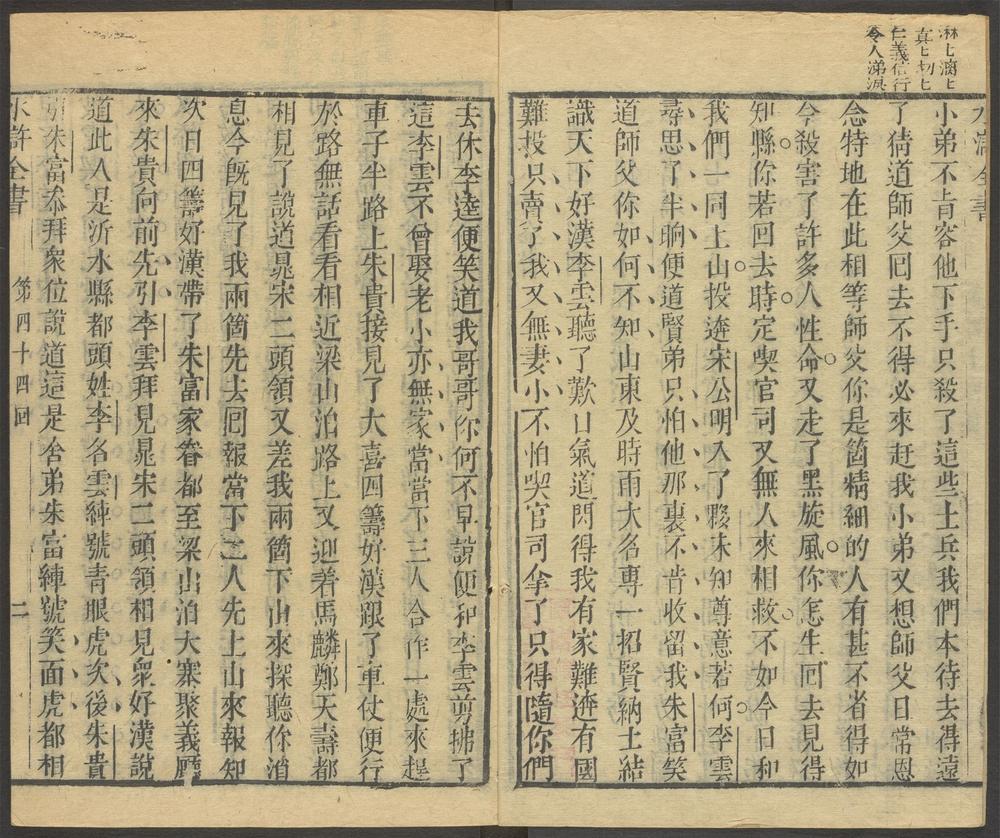 淋乚漓乚
真乚切乚
仁義信行
令人涕淚
水滸全書
小弟不肯容他下手只殺了這些土兵我們本待去得遠
了猜道師父囘去不得必來赶我小弟又想師父日常恩
念特地在此相等師父你是箇精細的人有甚不省得如
今殺害了許多人性命又走了黑旋風你怎生回去見得
知縣你若回去時定喫官司又無人來相救不如今日和
我們一同上山投逩宋公明入了夥未知尊意若何李雲
尋思了半晌便道賢弟只怕他那裏不肯收留我朱富笑
道師父你如何不知山東及時雨大名專一招賢納士結
識天下好漢李雲聽了歎口氣道閃得我有家難逩有國
難投只賣了我又無妻小不怕喫官司拿了只得隨你們
去休李逵便笑道我哥哥你何不早說便和李雲剪拂了
這李雲不曾娶老小亦無家當當下三人合作一處來趕
車子半路上朱貴接見了大喜四籌好漢跟了車仗便行
於路無話看看相近梁山泊路上又迎着馬麟鄭天壽都
相見了說道晁宋二頭領又差我兩箇下山來探聽你消
息今旣見了我兩箇先去囘報當下二人先上山來報知
次日四籌好漢帶了朱富家眷都至梁山泊大寨聚義廳
來朱貴向前先引李雲拜見晁宋二頭領相見衆好漢說
道此人是沂水縣都頭姓李名雲綽號青眼虎次後朱貴
引朱富叅拜衆位說道這是舍弟朱富綽號笑面虎都相
水滸全書 第四十四回 二